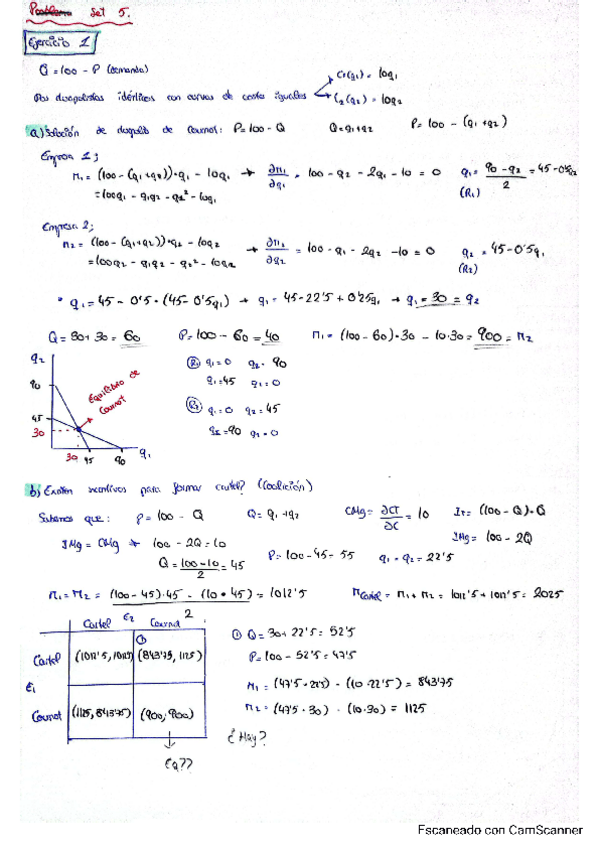 Problem Set 5.
Ejercicio 1
Q = 100 - P (demanda)
Dos duopolistas idénticos con curvas de coste iguales
C1(q1) = 10q1
C2(q2) = 10q2
a) Solución de duopolio de Cournot: P = 100 - Q Q = q1 + q2 P = 100 - (q1 + q2)
Empresa 1;
π1 = (100 - (q1 + q2)) · q1 - 10q1 → ∂π1/∂q1 = 100 - q2 - 2q1 - 10 = 0 q1 = (90 - q2)/2 = 45 - 0'5q2
= 100q1 - q1q2 - q2² - 10q1 (R1)
Empresa 2;
π2 = (100 - (q1 + q2)) · q2 - 10q2 → ∂π2/∂q2 = 100 - q1 - 2q2 - 10 = 0 q2 = 45 - 0'5q1
= 100q2 - q1q2 - q2² - 10q2 (R2)
* q1 = 45 - 0'5 · (45 - 0'5q1) → q1 = 45 - 22'5 + 0'25q1 → q1 = 30 = q2
Q = 30 + 30 = 60 P = 100 - 60 = 40 π1 = (100 - 60) · 30 - 10 · 30 = 900 = π2
q2
90
45
30
30 45 90 q1
Equilibrio de
Cournot
R1 q1 = 0 q2 = 90
q1 = 45 q2 = 0
R2 q1 = 0 q2 = 45
q2 = 90 q1 = 0
b) Existen incentivos para formar cartel? (Coalición)
Sabemos que: P = 100 - Q Q = q1 + q2 CMg = ∂CT/∂C = 10 IT = (100 - Q) · Q
IMg = CMg → 100 - 2Q = 10 IMg = 100 - 2Q
Q = (100 - 10)/2 = 45 P = 100 - 45 = 55 q1 = q2 = 22'5
π1 = π2 = (100 - 45) · 45 - (10 · 45) / 2 = 1012'5 πCartel = π1 + π2 = 1012'5 + 1012'5 = 2025
E2
Cartel Cournot
E1
Cartel (1012'5, 1012'5) ① (843'75, 1125)
Cournot (1125, 843'75) (900, 900)
Eq??
① Q = 30 + 22'5 = 52'5
P = 100 - 52'5 = 47'5
π1 = (47'5 · 22'5) - (10 · 22'5) = 843'75
π2 = (47'5 · 30) - (10 · 30) = 1125
¿Hay?
Escaneado con CamScanner